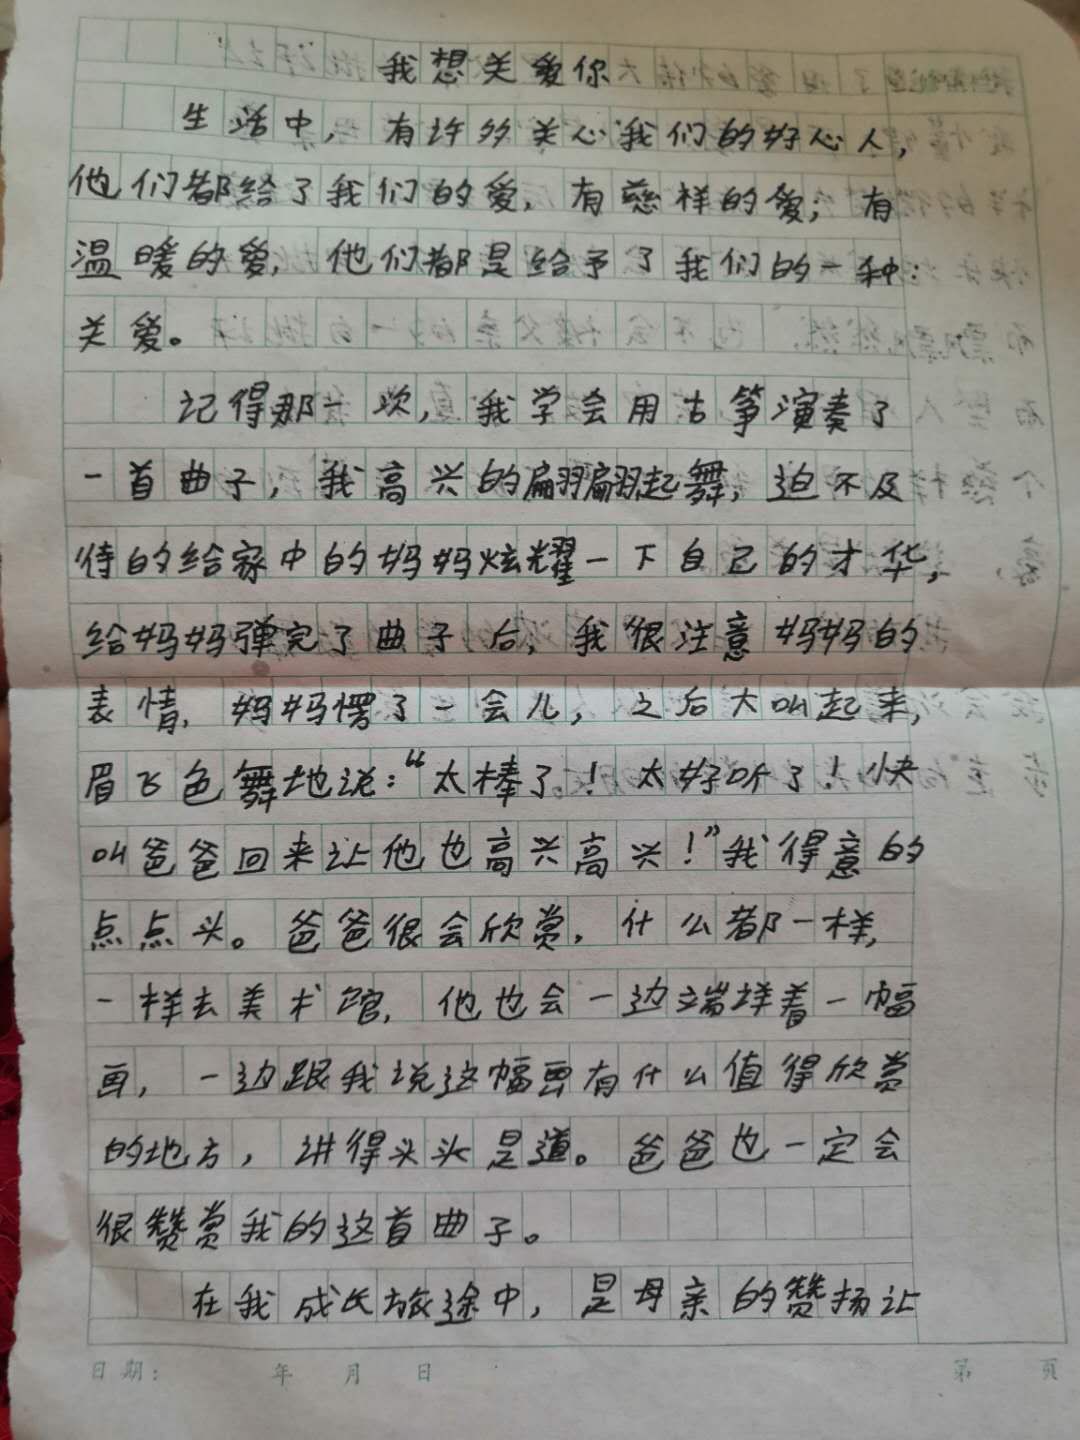 我想关爱你
生活中，有许多关心我们的好心人，
他们都给了我们的爱，有慈祥的爱；有
温暖的爱，他们都是给予了我们的一种
关爱。
记得那一次，我学会用古筝演奏了
一首曲子，我高兴的翩翩起舞，迫不及
待的给家中的妈妈炫耀一下自己的才华，
给妈妈弹完了曲子后，我很注意妈妈的
表情，妈妈愣了一会儿，之后大叫起来，
眉飞色舞地说：“太棒了！太好听了！快
叫爸爸回来让他也高兴高兴！”我得意的
点点头。爸爸很会欣赏，什么都一样，
一样去美术馆，他也会一边端详着一幅
画，一边跟我说这幅画有什么值得欣赏
的地方，讲得头头是道。爸爸也一定会
很赞赏我的这首曲子。
在我成长旅途中，是母亲的赞扬让
日期： 年 月 日 第 页